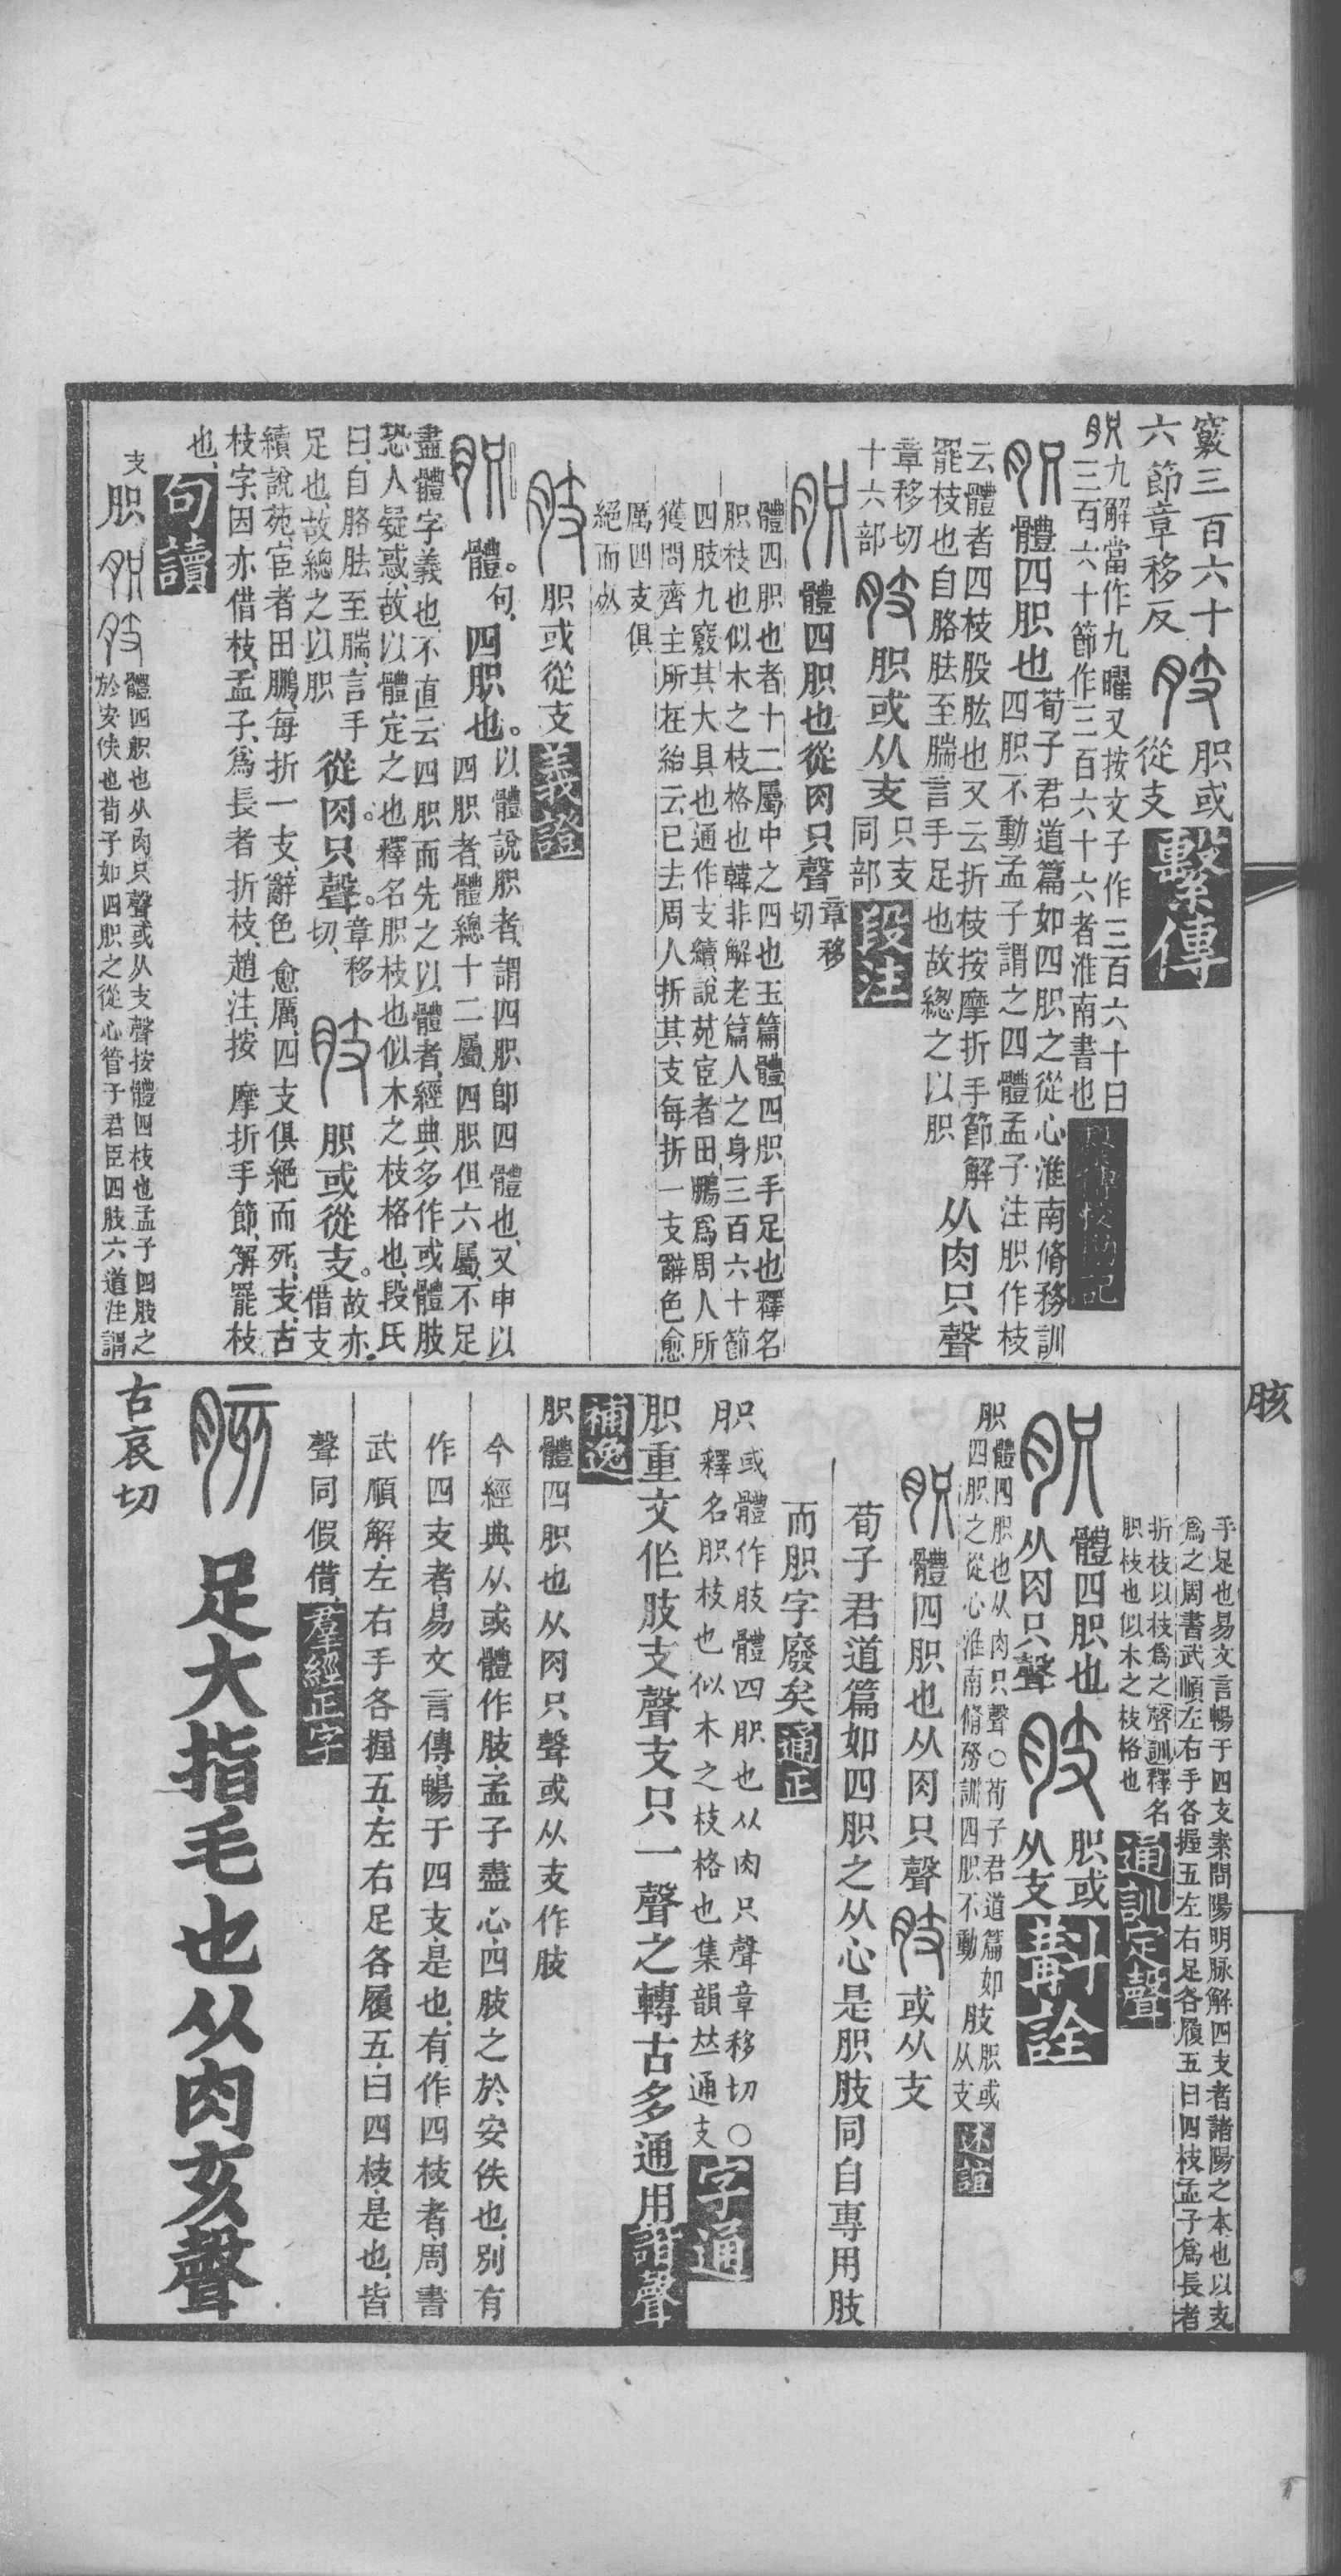 竅三百六十
六節章移反
肢
胑或
從支
繫傳
胑九解當作九曜又按文子作三百六十日
三百六十節作三百六十六者淮南書也
胑體四胑也
荀子君道篇如四胑之從心淮南脩務訓
四胑不動孟子謂之四體孟子注胑作枝
云體者四枝股肱也又云折枝按摩折手節解
罷枝也自胳胠至腨言手足也故總之以胑
从肉只聲
章移切
十六部
肢胑或从支
只支
同部
段注
胑體四胑也從肉只聲
章移
切
體四胑也者十二屬中之四也玉篇體四胑手足也釋名
胑枝也似木之枝格也韓非解老篇人之身三百六十節
四肢九竅其大具也通作支續說苑宦者田鵬爲周人所
獲問齊主所在紿云已去周人折其支每折一支辭色愈
厲四支俱
絕而死
肢胑或從支
義證
胑體。句、四胑也。
以體說胑者、謂四胑卽四體也、又申以
四胑者、體總十二屬、四胑但六屬、不足
盡體字義也、不直云四胑而先之以體者、經典多作或體肢
恐人疑惑、故以體定之也、釋名胑枝也似木之枝格也、段氏
曰、自胳胠至腨、言手
足也、故總之以胑
從肉只聲。
章移
切、
肢胑或從支。
故亦
借支
續說苑宦者田鵬、每折一支、辭色愈厲、四支俱絕而死、支、古
枝字、因亦借枝、孟子、爲長者折枝、趙注、按摩折手節、解罷枝
也、
句讀
支
胑胑肢
體四胑也从肉只聲或从支聲按體四枝也孟子四肢之
於安佚也荀子如四胑之從心管子君臣四肢六道注謂
胲
手足也易文言暢于四支素問陽明脉解四支者諸陽之本也以支
爲之周書武順左右手各握五左右足各履五曰四枝孟子爲長者
折枝以枝爲之聲訓釋名
胑枝也似木之枝格也
通訓定聲
胑體四胑也
从肉只聲
肢胑或
从支
斠詮
胑
體四胑也从肉只聲○荀子君道篇如
四胑之從心淮南脩務訓四胑不動
肢
胑或
从支
述誼
胑體四胑也从肉只聲肢或从支
荀子君道篇如四胑之从心是胑肢同自專用肢
而胑字廢矣
通正
胑
或體作肢體四胑也从肉只聲章移切○
釋名胑枝也似木之枝格也集韻𠀤通支
字通
胑重文作肢支聲支只一聲之轉古多通用
諧聲
補逸
胑體四胑也从肉只聲或从支作肢
今經典从或體作肢、孟子盡心、四肢之於安佚也、別有
作四支者、易文言傳、暢于四支、是也、有作四枝者、周書
武順解、左右手各握五、左右足各履五、曰四枝、是也、皆
聲同假借、
羣經正字
胲足大指毛也从肉亥聲
古哀切